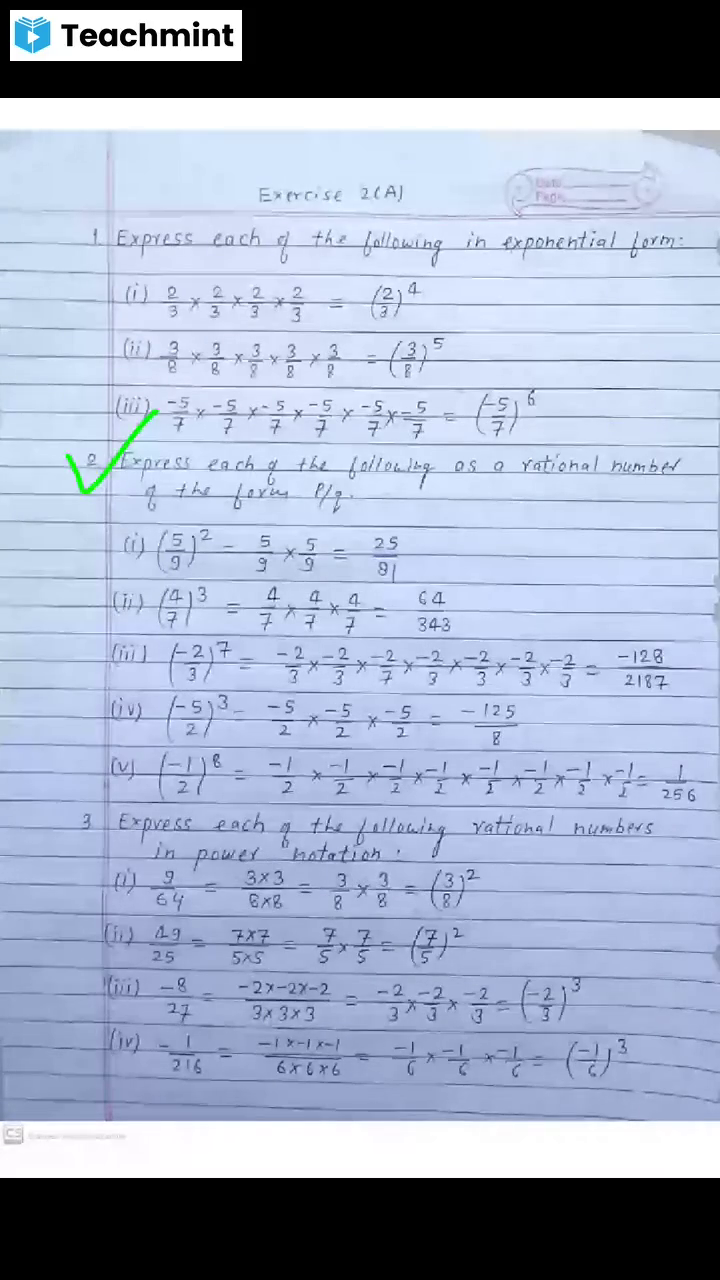 Teachmint
Exercise 2(A)
Date
Page
1 Express each of the following in exponential form:
(i) 2/3 × 2/3 × 2/3 × 2/3 = (2/3)^4
(ii) 3/8 × 3/8 × 3/8 × 3/8 × 3/8 = (3/8)^5
(iii) -5/7 × -5/7 × -5/7 × -5/7 × -5/7 × -5/7 = (-5/7)^6
2 Express each of the following as a rational number
of the form P/q.
(i) (5/9)^2 - 5/9 × 5/9 = 25/81
(ii) (4/7)^3 = 4/7 × 4/7 × 4/7 = 64/343
(iii) (-2/3)^7 = -2/3 × -2/3 × -2/7 × -2/3 × -2/3 × -2/3 × -2/3 = -128/2187
(iv) (-5/2)^3 - -5/2 × -5/2 × -5/2 = -125/8
(v) (-1/2)^8 = -1/2 × -1/2 × -1/2 × -1/2 × -1/2 × -1/2 × -1/2 × -1/2 = 1/256
3 Express each of the following rational numbers
in power notation.
(i) 9/64 = 3×3/8×8 = 3/8 × 3/8 = (3/8)^2
(ii) 49/25 = 7×7/5×5 = 7/5 × 7/5 = (7/5)^2
(iii) -8/27 = -2×-2×-2/3×3×3 = -2/3 × -2/3 × -2/3 = (-2/3)^3
(iv) -1/216 = -1×-1×-1/6×6×6 = -1/6 × -1/6 × -1/6 = (-1/6)^3
CS